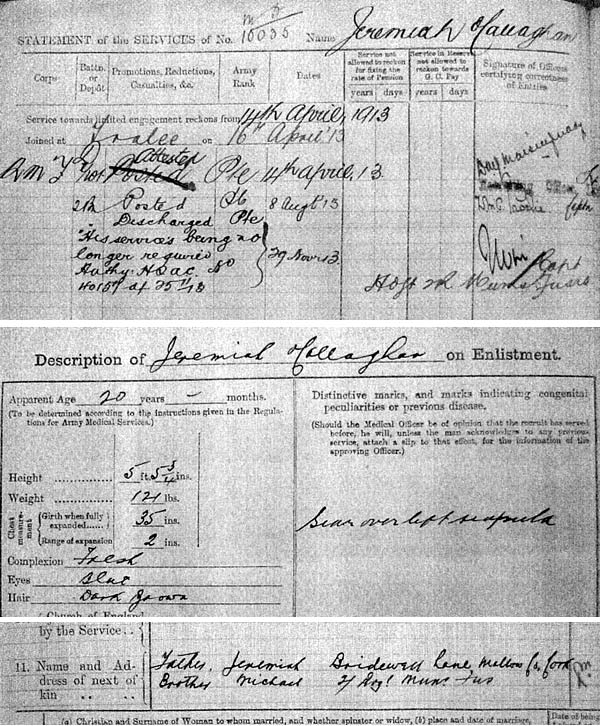 STATEMENT of the SERVICES of No. 10035 Name Jeremiah O'Callaghan
Corps Battn. or Depôt Promotions, Reductions, Casualties, &c. Army Rank Dates Service not allowed to reckon for fixing the rate of Pension Service in Reserve not allowed to reckon towards G. C. Pay Signature of Officers certifying correctness of Entries
years days years days
Service towards limited engagement reckons from 14th April, 1913
Joined at Tralee on 16th April '13
Attested
R M F Posted Pte 14th April, 13
2nd Posted Pte 8 Augt '13
Discharged Pte
"His services being no
longer required
29 Novr 13
Capt
Description of Jeremiah O'Callaghan on Enlistment.
Apparent Age 20 years – months.
(To be determined according to the instructions given in the Regulations for Army Medical Services.)
Distinctive marks, and marks indicating congenital
peculiarities or previous disease.
(Should the Medical Officer be of opinion that the recruit has served
before, he will, unless the man acknowledges to any previous
service, attach a slip to that effect, for the information of the
approving Officer.)
Height 5 ft. 5 3/4 ins.
Weight 121 lbs.
Chest measurement
Girth when fully expanded 35 ins.
Range of expansion 2 ins.
Scar over left scapula
Complexion Fresh
Eyes Blue
Hair Dark Brown
Church of England
by the Service
11. Name and Address of next of kin
Father, Jeremiah Bridewell Lane Mallow Co. Cork
Brother Michael 2/ Royl Muns Fus
(a) Christian and Surname of Woman to whom married, and whether spinster or widow, (b) place and date of marriage,
Date of being